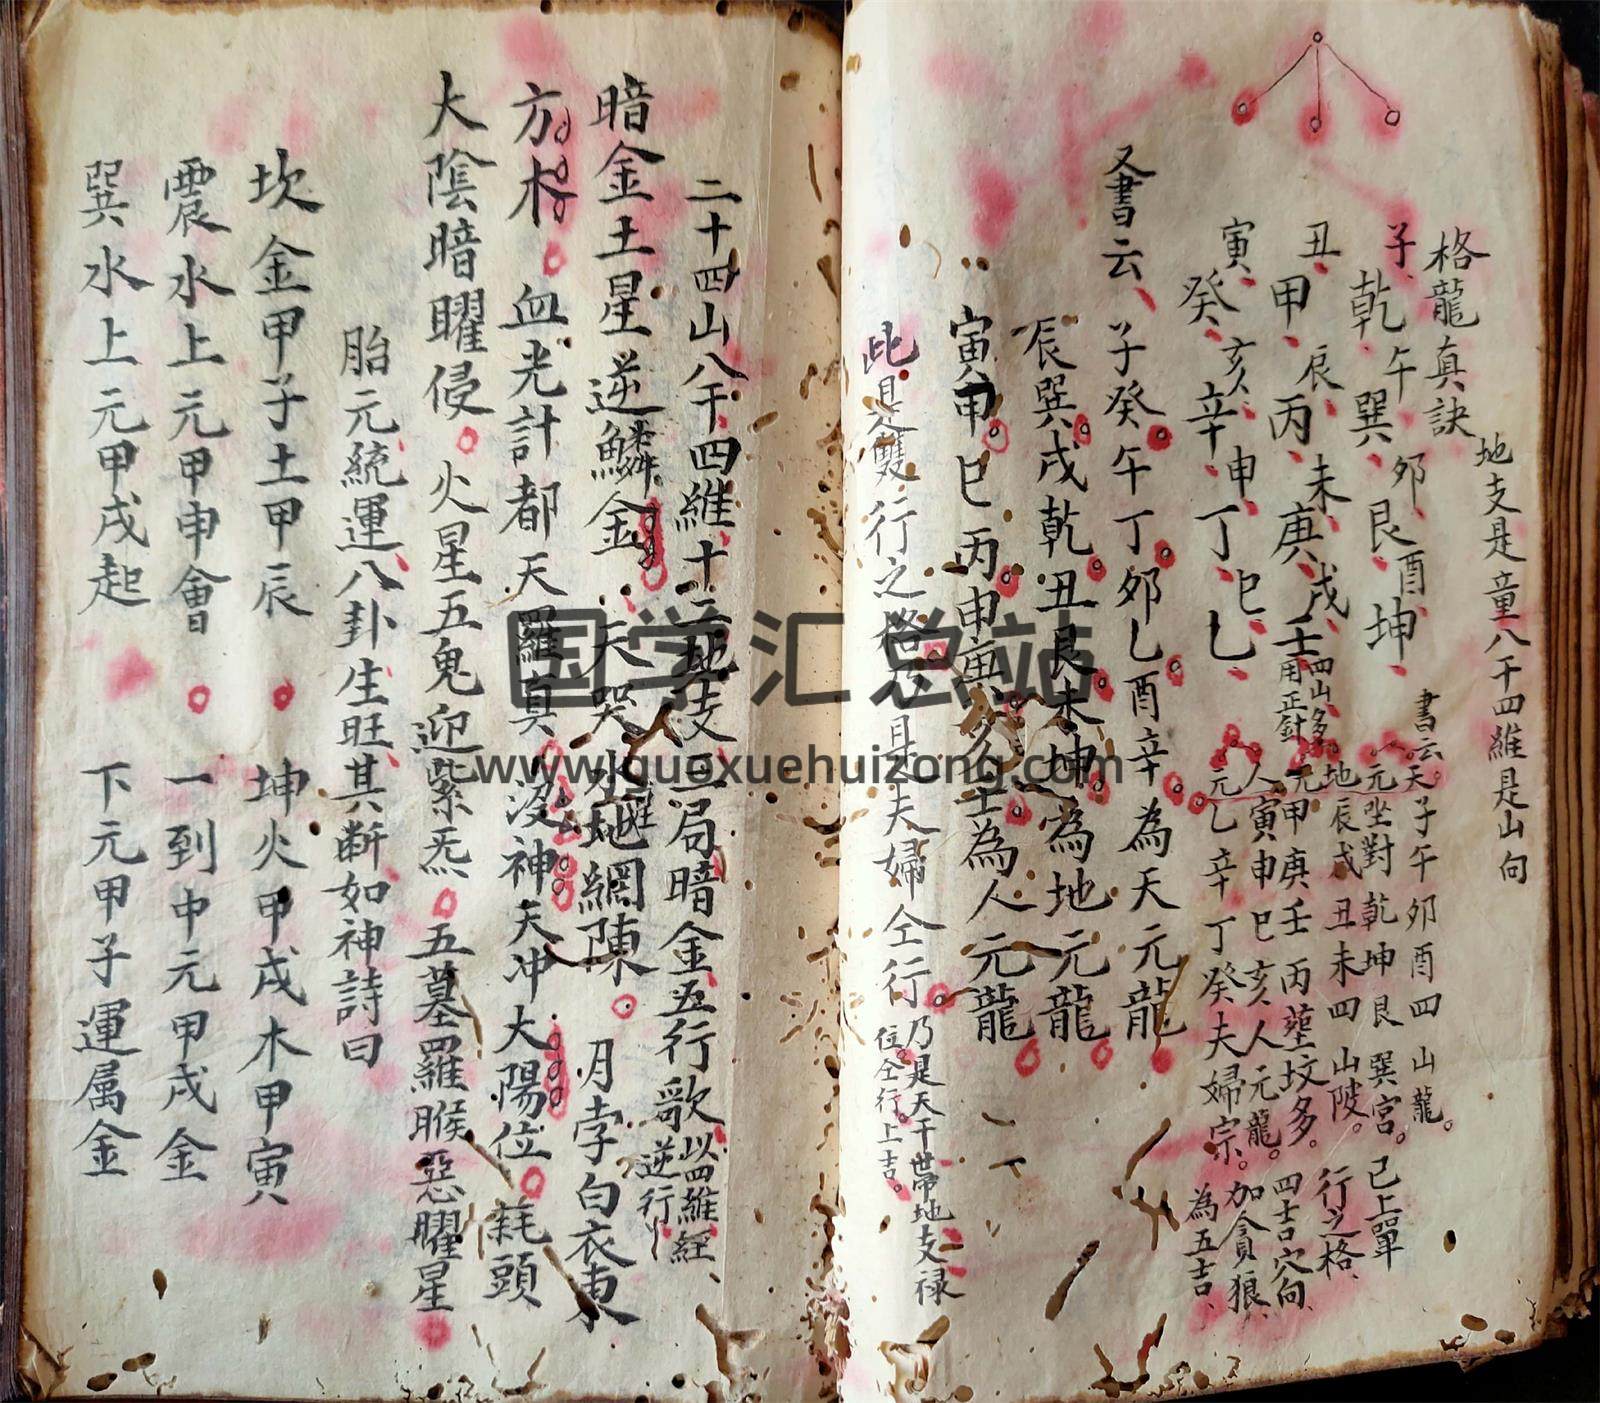 地支是童八干四維是山向
格龍真訣
子、乾、午、巽、卯、艮、酉、坤、
丑、甲、辰、丙、未、庚、戌、壬
四山多
用正針
寅、癸、亥、辛、申、丁、巳、乙、
書云。天子午卯酉四山龍。
元坐對乾坤艮巽宮。
地辰戌丑未四山陂。
元甲庚壬丙塟坟多。
人寅申巳亥人元龍。
元乙辛丁癸夫婦宗。
已上單
行之格、
四吉穴向、
加貪狼、
為五吉、
又書云、子癸午丁卯乙酉辛為天元龍
辰巽戌乾丑艮未坤為地元龍
寅甲巳丙申庚亥壬為人元龍
此是雙行之格乃是夫婦仝行。
乃是天干帶地支禄
位。仝行。上吉。
二十四山八干四維十二地支三局暗金五行歌
以四維經、
逆行
暗金土星逆鱗金 天哭水羅地網陳 月孛白衣東
方木 血光計都天羅真 沒神天冲大陽位 耗頭
大陰暗曜侵 火星五鬼迎紫炁 五墓羅睺惡曜星
胎元統運八卦生旺其断如神詩曰
坎金甲子土甲辰 坤火甲戌木甲寅
震水上元甲申會 一到中元甲戌金
巽水上元甲戌起 下元甲子運属金
国学汇总站
www.guoxuehuizong.com